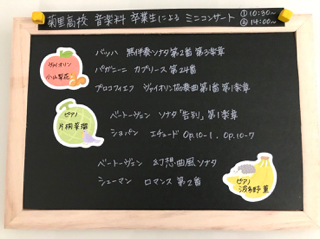 菊里高校 音楽科 卒業生による ミニコンサート ①10:30~
②14:00~
バッハ 無伴奏ソナタ第2番 第3楽章
パガニーニ カプリース 第24番
プロコフィエフ ヴァイオリン協奏曲第1番 第1楽章
ヴァイオリン
ベートーヴェン ソナタ「告別」第1楽章
ショパン エチュード Op.10-1, Op.10-7
ピアノ
ベートーヴェン 幻想曲風ソナタ
シューマン ロマンス 第2番
ピアノ